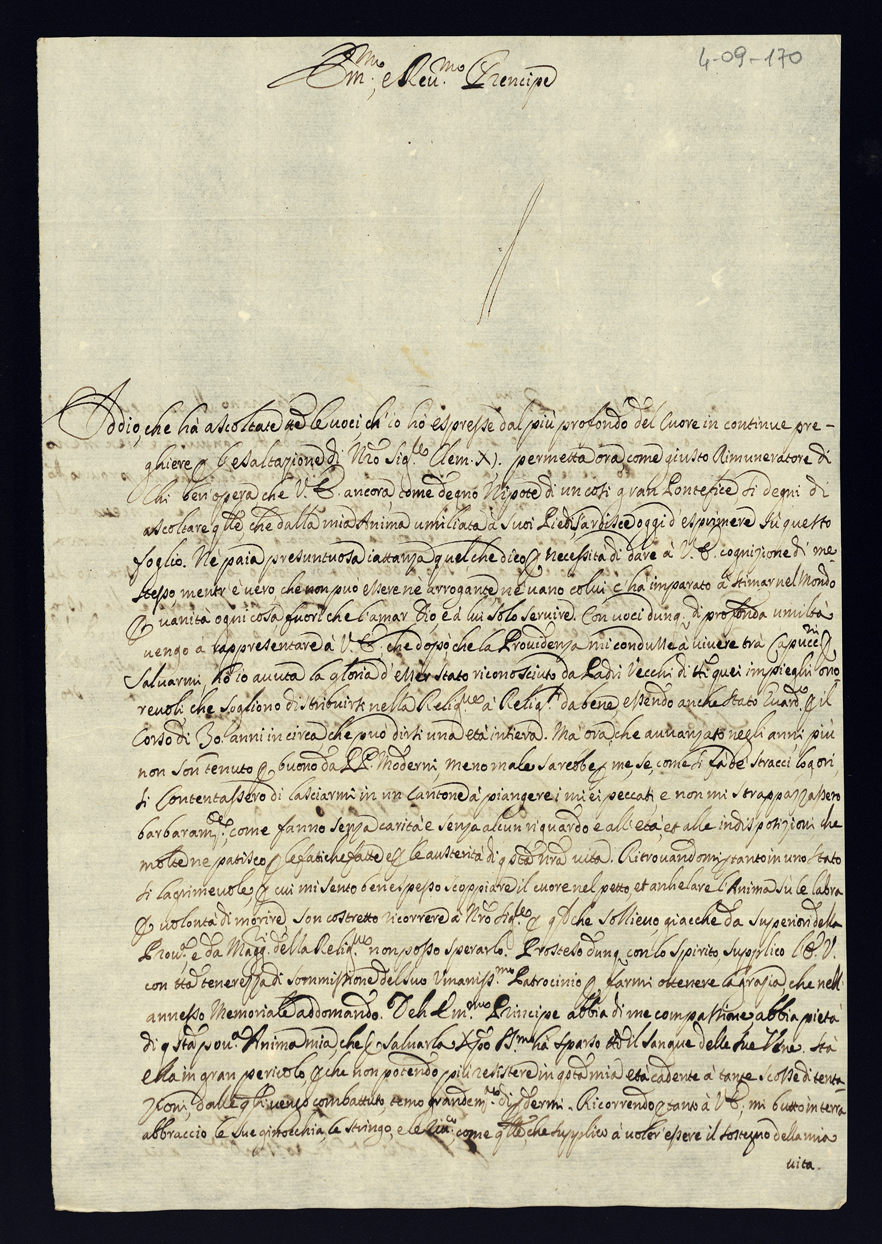 4-09-170
Em.mo e Reu.mo Prencipe
Iddio, che hà ascoltate tte le uoci, ch'io hò espresse dal più profondo del Cuore in continue pre-
ghiere p l'esaltazione di Nro Sig.re Clem. XI. permetta ora, come giusto Rimuneratore di
Chi ben opera che V. E. ancora, come degno Nipote di un così gran Pontefice si degni di
ascoltare qlle che dalla mia Anima umiliata à suoi Piedi, s'ardisce oggi d'esprimere sù questo
foglio. Nè paia presuntuosa iattanza quel che dico p necessità di dare à V. E. cognizione di me
stesso, mentr'è uero che non può essere ne arrogante nè uano colui c'hà imparato à stimar nel Mondo
p uanità ogni cosa fuori che l'amar Dio e à lui solo seruire. Con uoci dunq. di profonda umiltà
uengo à rappresentare à V. E., che dopò che la Prouidenza mi condusse à uiuere trà Capuccini p
Saluarmi, hò io auuta la gloria d'esser stato riconosciuto da Padri Vecchi di tti quei impieghi ono-
reuoli, che sogliono distribuirsi nella Relig.ne à Relig.si da bene essendo anche stato Guard.o p il
Corso di 30. anni in circa che può dirsi una età intiera. Ma ora, che auuanzato negli anni più
non son tenuto p buono da PP. Moderni, meno male sarebbe p me, se, come si fà de' stracci logori,
si Contentassero di lasciarmi in un Cantone à piangere i miei peccati, e non mi strappazzassero
barbaram.te, come fanno senza carità e senza alcun riguardo e all'età, et alle indisposizioni che
molte ne patisco p le fatiche fatte e p le austerità di qsta nra uita. Ritrouandomi ptanto in uno stato
sì lagrimeuole, p cui mi sento bene spesso scoppiare il cuore nel petto, et anhelare l'Anima sù le labra
p uolontà di morire, son costretto ricorrere à Nro Sig.re p qlche sollieuo, giacche da Superiori della
Prou.a e da Magg.ri della Relig.ne non posso sperarlo. Prosteso dunq. con lo spirito, supplico l'E. V.
con tta tenerezza di sommissione del suo Vmaniss.mo Patrocinio p farmi ottenere la grazia, che nell'
annesso Memoriale addomando. Deh Em.mo Principe abbia di me compassione, abbia pietà
di qsta pou.a Anima mia, che p saluarla Xpo Sig.re hà sparso tto il sangue delle sue Vene. Stà
ella in gran pericolo, p che non potendo più resistere in qsta mia età cadente à tante scosse di tenta-
zioni, dalle qli uengo combattuto, temo grandem.te di pdermi. Ricorrendo ptanto à V. E. mi butto in terra
abbraccio le sue ginocchia, le stringo, e le come qlle, che supplico à uoler essere il sostegno della mia
uita.